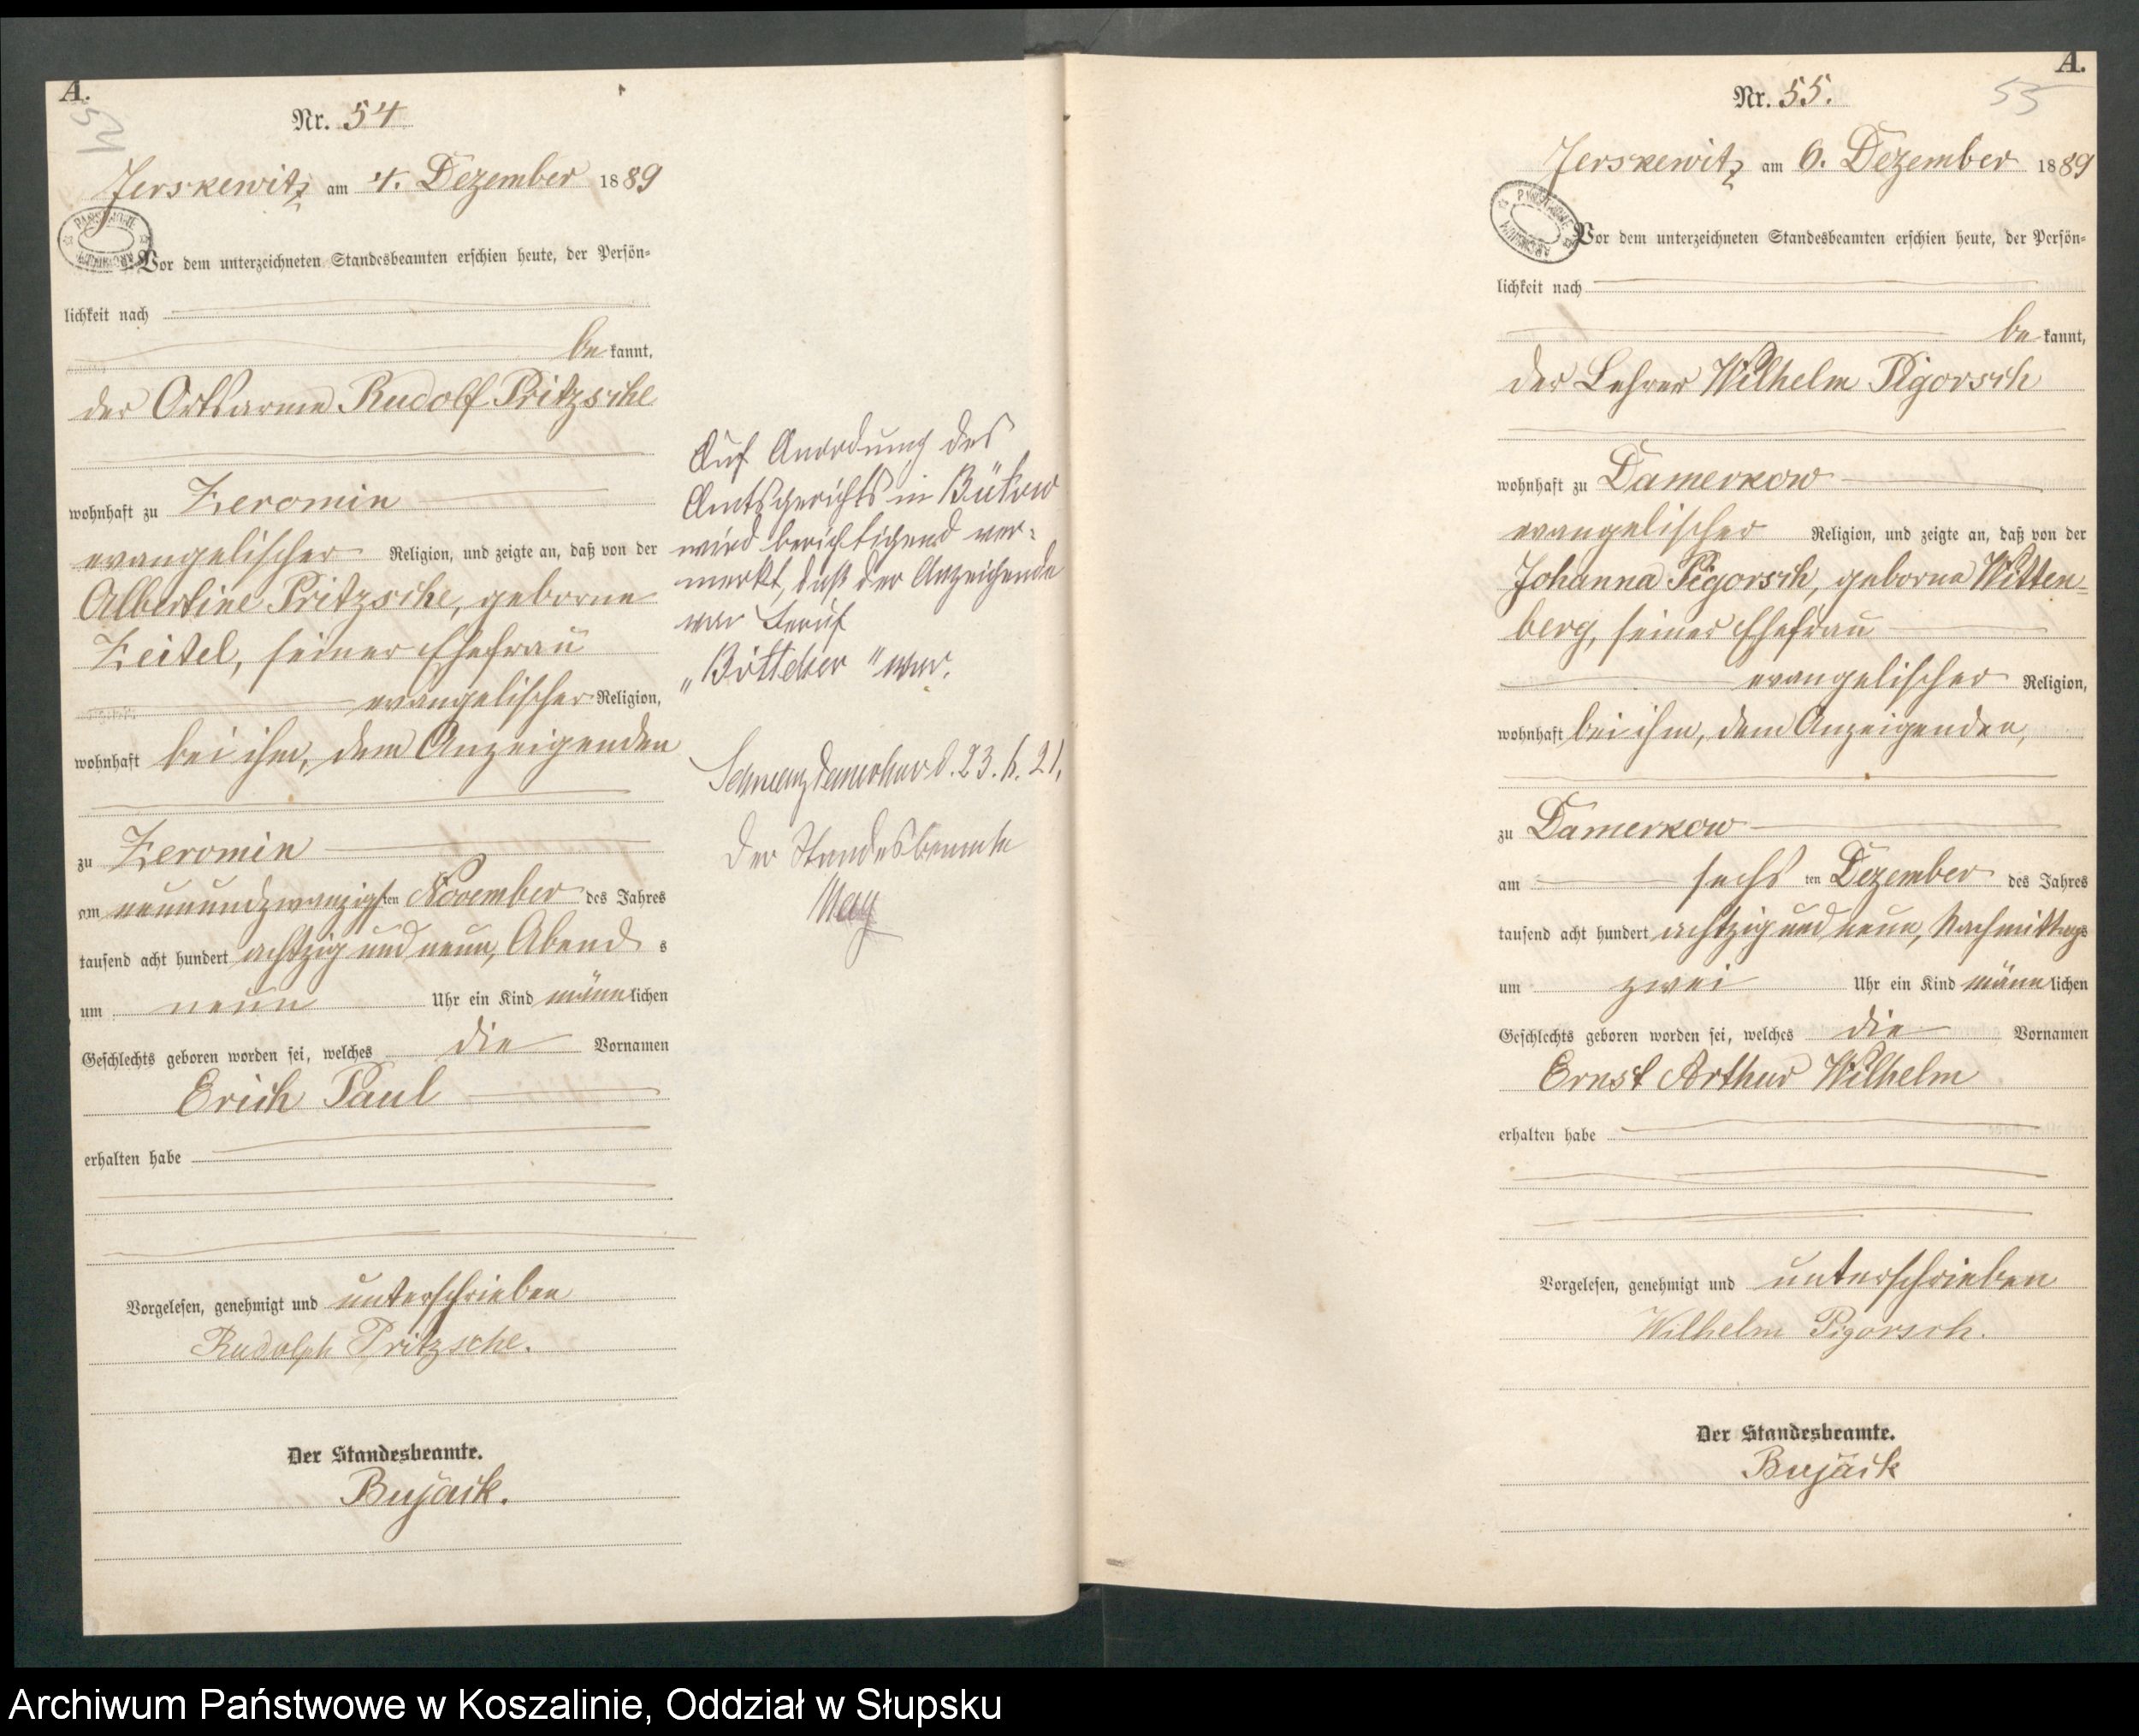 A.
54
Nr. 54
Jerskewitz am 4. Dezember 1889
Vor dem unterzeichneten Standesbeamten erschien heute, der Persön=
lichkeit nach
be kannt,
der Ortsarme Rudolf Pritzsche
wohnhaft zu Zeromin
evangelischer Religion, und zeigte an, daß von der
Albertine Pritzsche, geborne
Zeitel, seiner Ehefrau
evangelischer Religion,
wohnhaft bei ihm, dem Anzeigenden
zu Zeromin
am neunundzwanzigsten November des Jahres
tausend acht hundert achtzig und neun, Abend s
um neun Uhr ein Kind männlichen
Geschlechts geboren worden sei, welches die Vornamen
Erich Paul
erhalten habe
Vorgelesen, genehmigt und unterschrieben
Rudolph Pritzsche.
Der Standesbeamte.
Bujäck.
Auf Anordung des
Amtsgerichts in Bütow
wird berichtigend ver=
merkt, daß der Anzeigende
von Beruf
„Böttcher" war.
Schwarz Damerkow d. 23. 6. 21.
Der Standesbeamte
May
A.
Nr. 55.
55
Jerskewitz am 6. Dezember 1889
Vor dem unterzeichneten Standesbeamten erschien heute, der Persön=
lichkeit nach
be kannt,
der Lehrer Wilhelm Pigorsch
wohnhaft zu Damerkow
evangelischer Religion, und zeigte an, daß von der
Johanna Pigorsch, geborne Witten=
berg, seiner Ehefrau
evangelischer Religion,
wohnhaft bei ihm, dem Anzeigenden,
zu Damerkow
am sechs ten Dezember des Jahres
tausend acht hundert achtzig und neun, Nachmittags
um zwei Uhr ein Kind männlichen
Geschlechts geboren worden sei, welches die Vornamen
Ernst Arthur Wilhelm
erhalten habe
Vorgelesen, genehmigt und unterschrieben
Wilhelm Pigorsch.
Der Standesbeamte.
Bujäck
Archiwum Państwowe w Koszalinie, Oddział w Słupsku